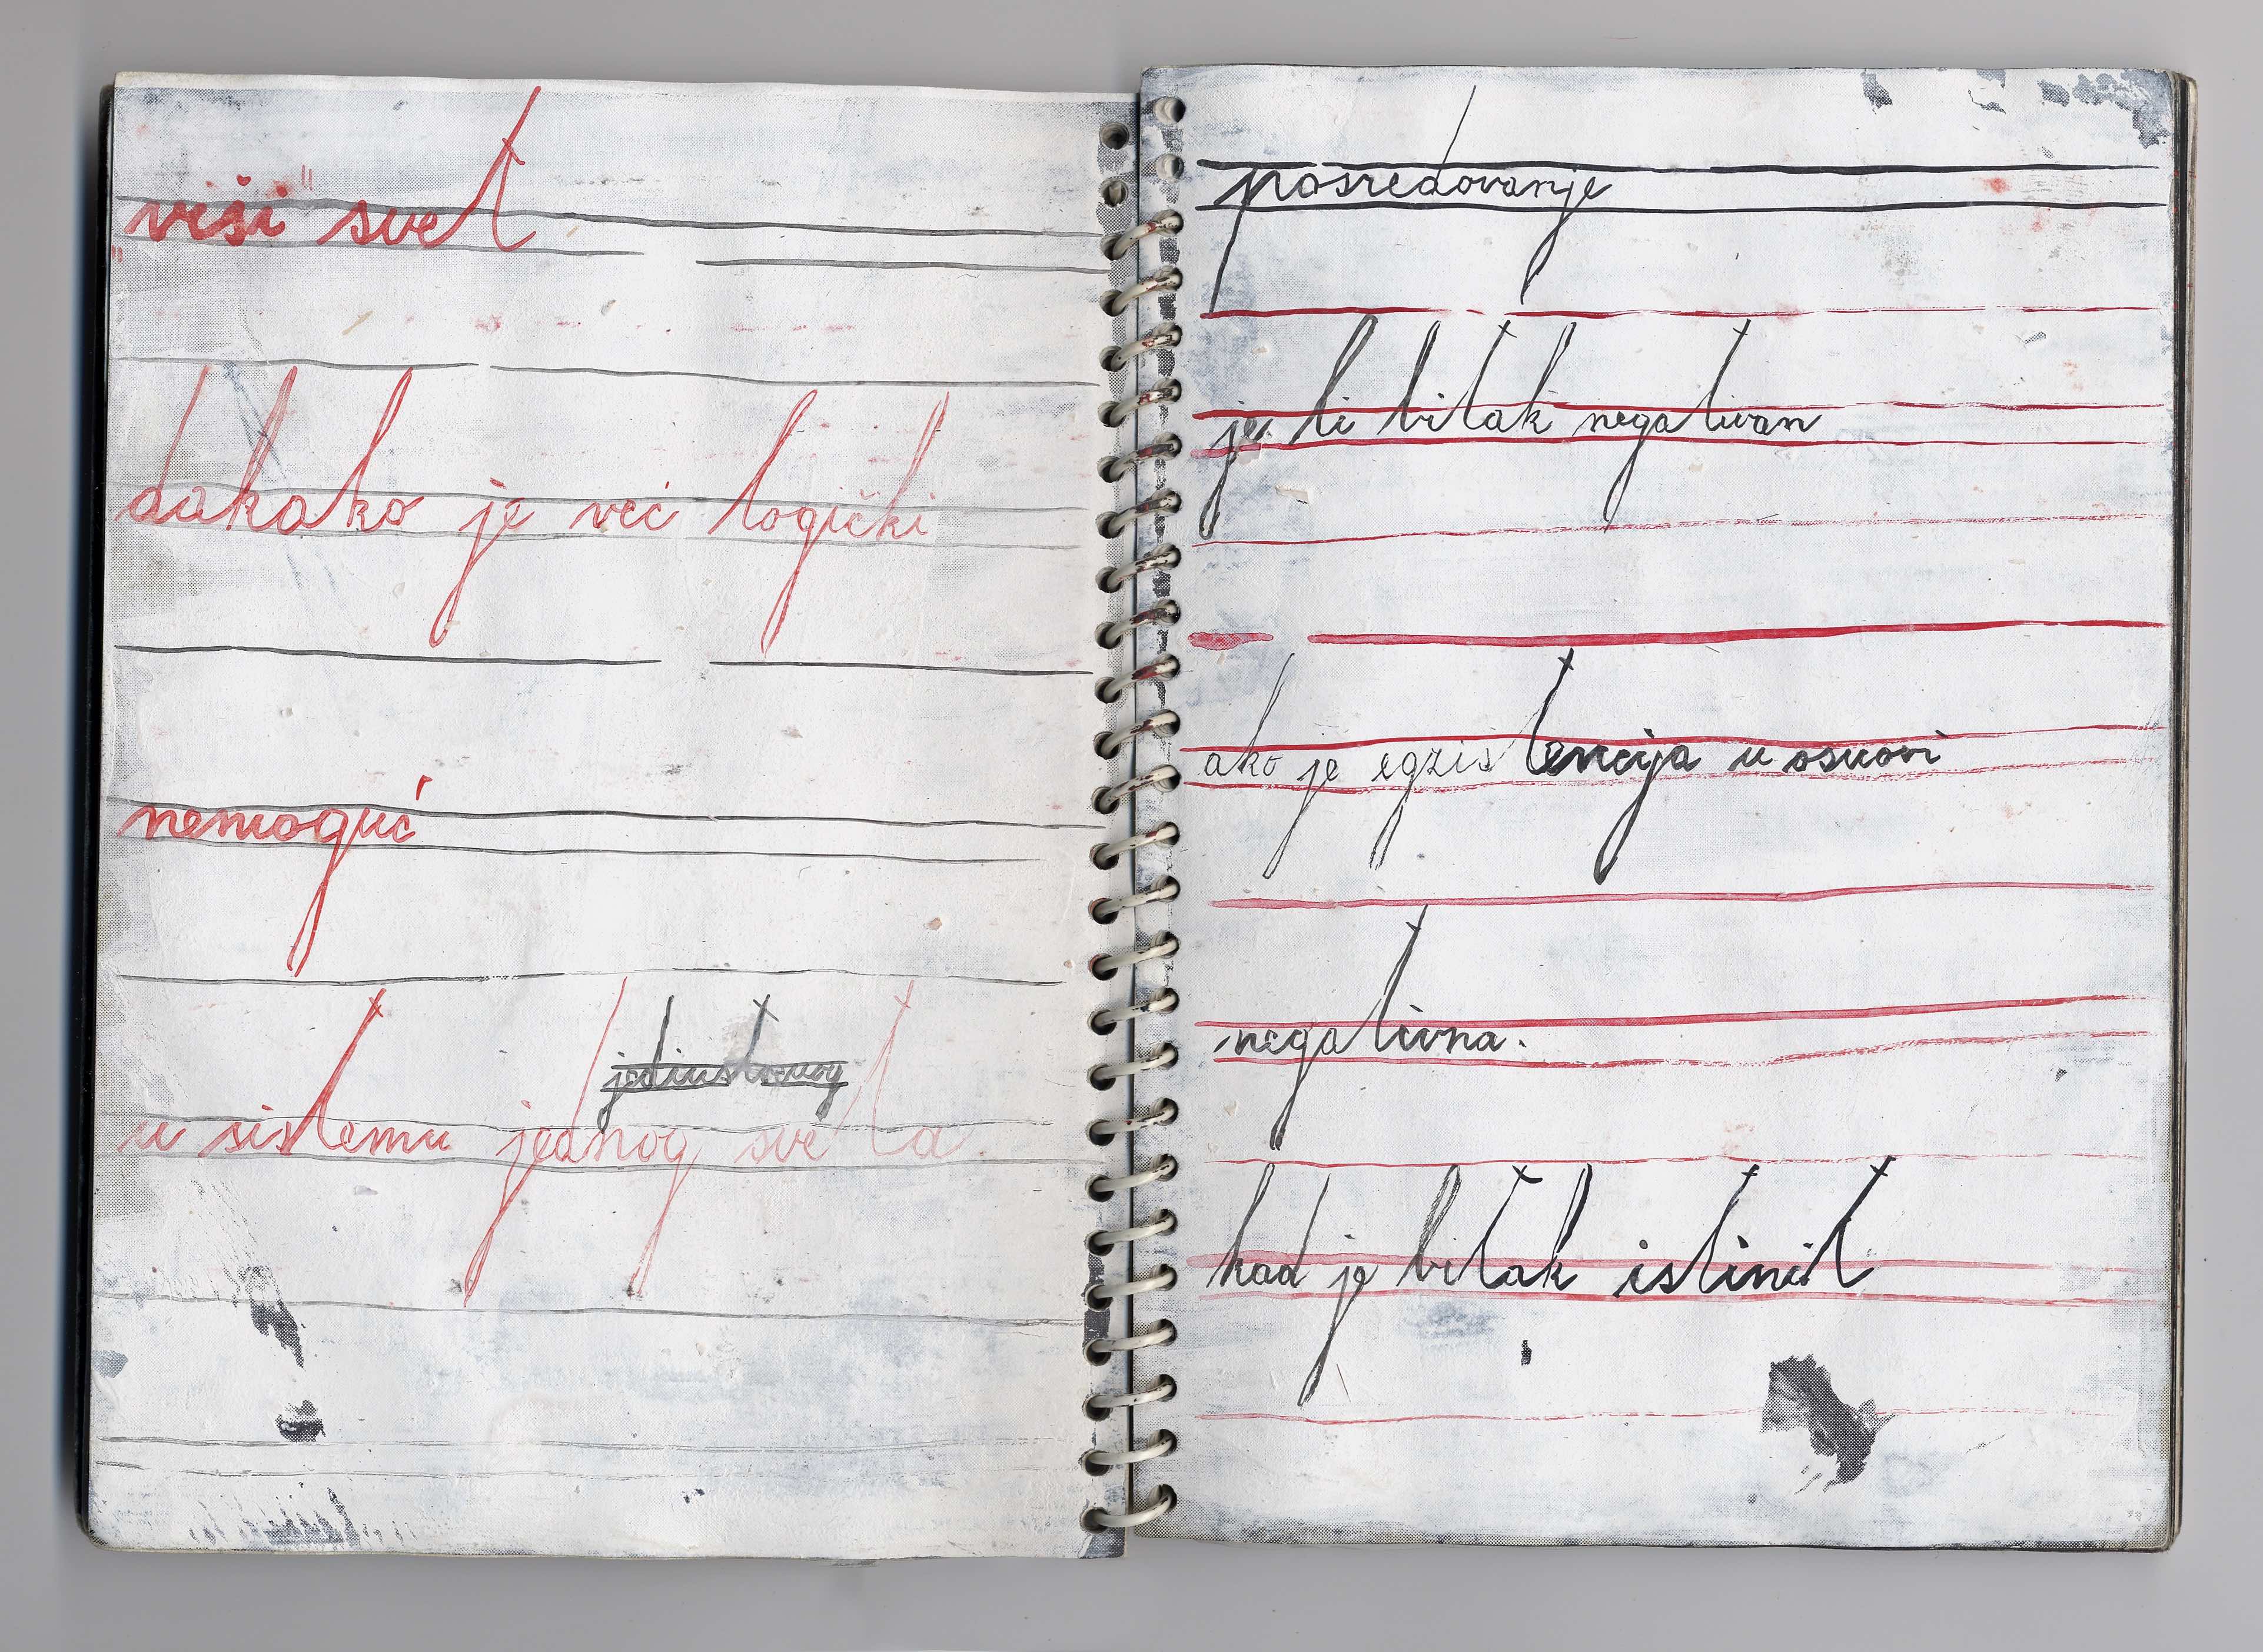 "viši" svet
dakako je već logički
nemoguć
jedinstvenog
u sistemu jednog sveta.
posredovanje
je li bitak negativan
ako je egzistencija u osnovi
negativna.
kad je bitak istinit